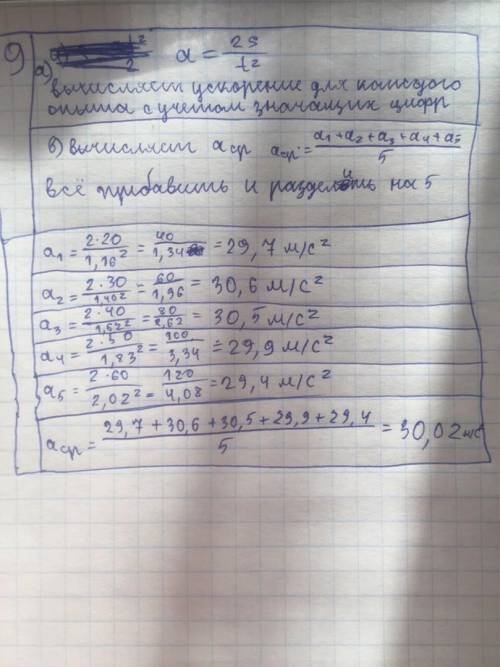 9
а) a = 2S / t²
вычисляет ускорение для каждого
опыта с учетом значащих цифр
в) вычисляет aср aср = a1 + a2 + a3 + a4 + a5 / 5
всё прибавить и разделить на 5
a1 = 2·20 / 1,16² = 40 / 1,34 = 29,7 м/с²
a2 = 2·30 / 1,40² = 60 / 1,96 = 30,6 м/с²
a3 = 2·40 / 1,62² = 80 / 2,62 = 30,5 м/с²
a4 = 2·50 / 1,83² = 100 / 3,34 = 29,9 м/с²
a5 = 2·60 / 2,02² = 120 / 4,08 = 29,4 м/с²
aср = 29,7 + 30,6 + 30,5 + 29,9 + 29,4 / 5 = 30,02 м/с